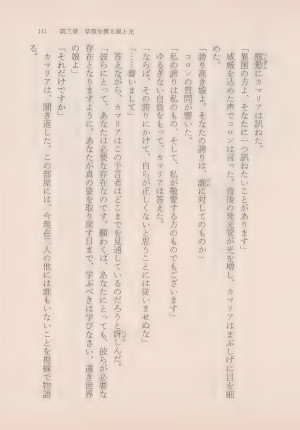 141　第三章　草原を渡る風と光
慇懃にカマリアは訊ねた。
「異国の方よ、そなたに一つ訊ねたいことがあります」
威厳を込めた声でコロンは言った。背後の発光管が光を増し、カマリアはまぶしげに目を細
めた。
「誇り高き娘よ。そなたの誇りは、誰に対してのものか」
コロンの質問が響いた。
「私の誇りは私のもの、そして、私が敬愛する方のものでもございます」
ゆるぎない自負をもって、カマリアは答えた。
「ならば、その誇りにかけて、自らが正しくないと思うことには従いませぬな」
「――誓いまして」
答えながら、カマリアはこの予言者はどこまでを見通しているのだろうと訝しんだ。
「彼らにとって、あなたは必要な存在なのです。願わくば、あなたにとっても、彼らが必要な
存在となりますように。あなたが真の姿を取り戻す日まで、学ぶべきは学びなさい、遠き世界
の娘よ」
「それだけですか」
カマリアは、聞き返した。この部屋には、今現在二人の他には誰もいないことを視線で物語
る。